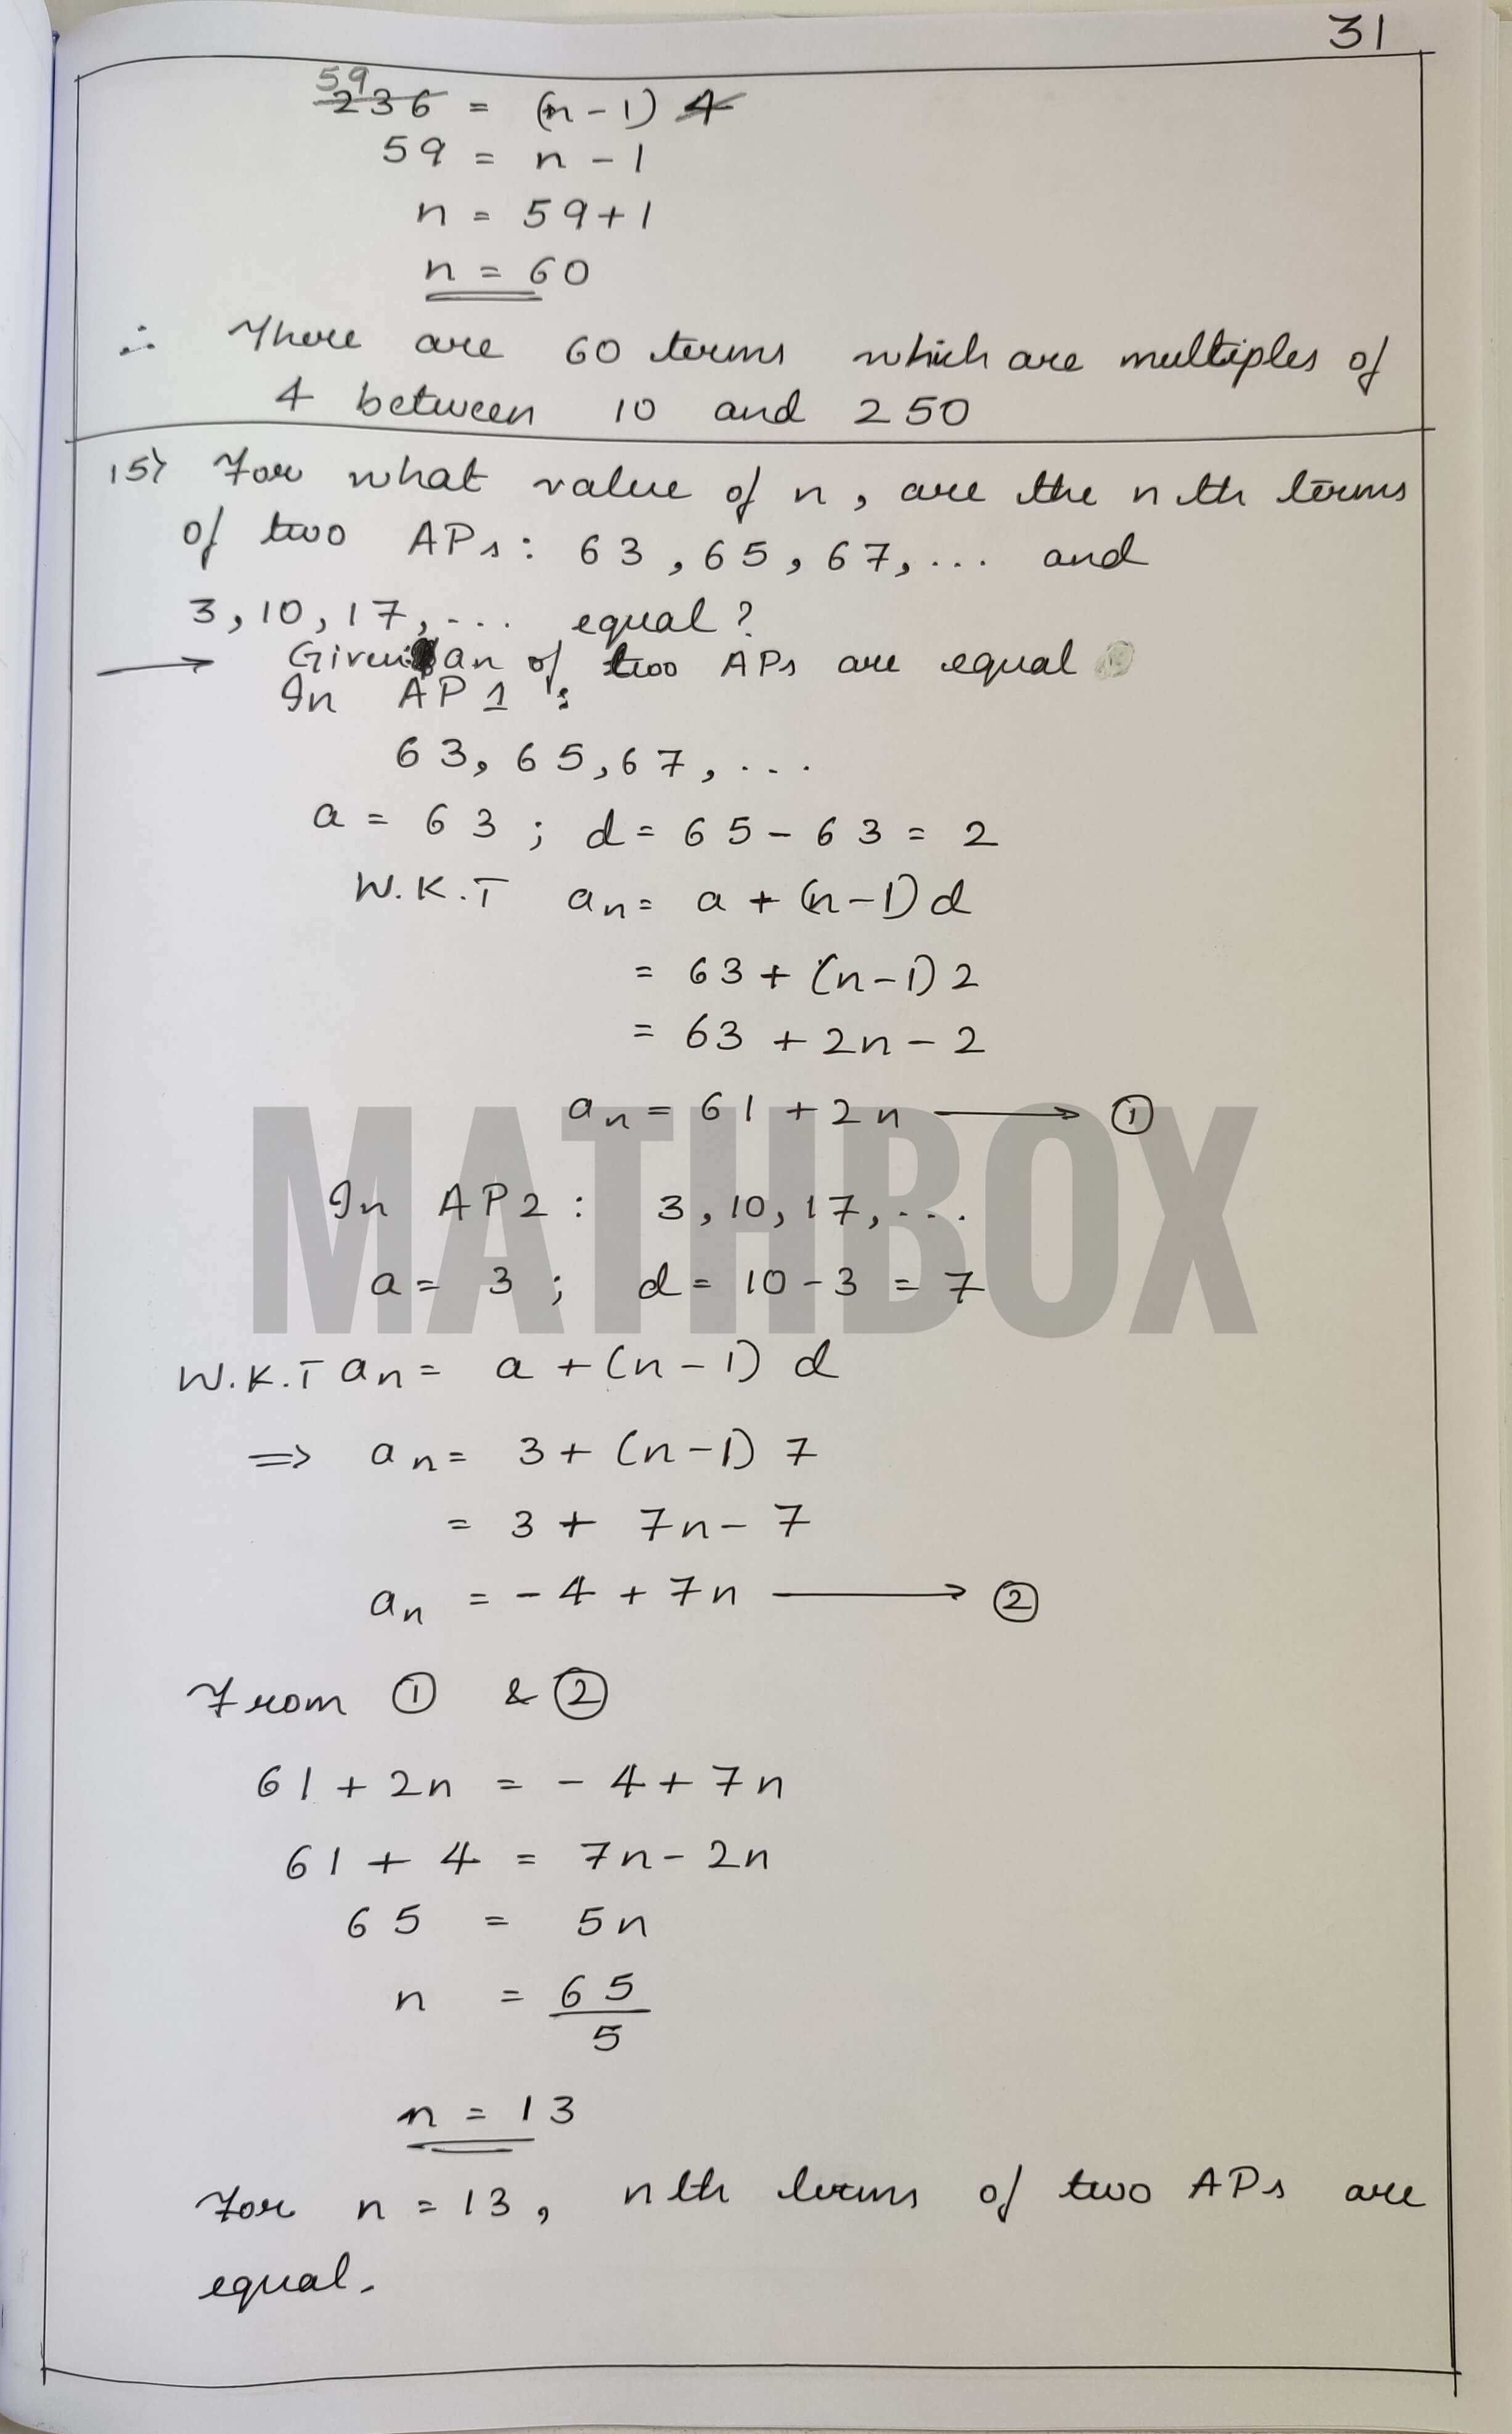 31
59
236 = (n-1) 4
59 = n - 1
n = 59+1
n = 60
∴ There are 60 terms which are multiples of
4 between 10 and 250
15) For what value of n, are the nth terms
of two APs: 63, 65, 67, ... and
3, 10, 17, ... equal?
→ Given: an of two APs are equal
In AP 1 :
63, 65, 67, ...
a = 63 ; d = 65 - 63 = 2
W.K.T an = a + (n-1) d
= 63 + (n-1) 2
= 63 + 2n - 2
an = 61 + 2n → ①
MATHBOX
In AP2 : 3, 10, 17, ...
a = 3 ; d = 10 - 3 = 7
W.K.T an = a + (n-1) d
⇒ an = 3 + (n-1) 7
= 3 + 7n - 7
an = -4 + 7n → ②
From ① & ②
61 + 2n = -4 + 7n
61 + 4 = 7n - 2n
65 = 5n
n = 65
5
n = 13
For n = 13, nth terms of two APs are
equal.